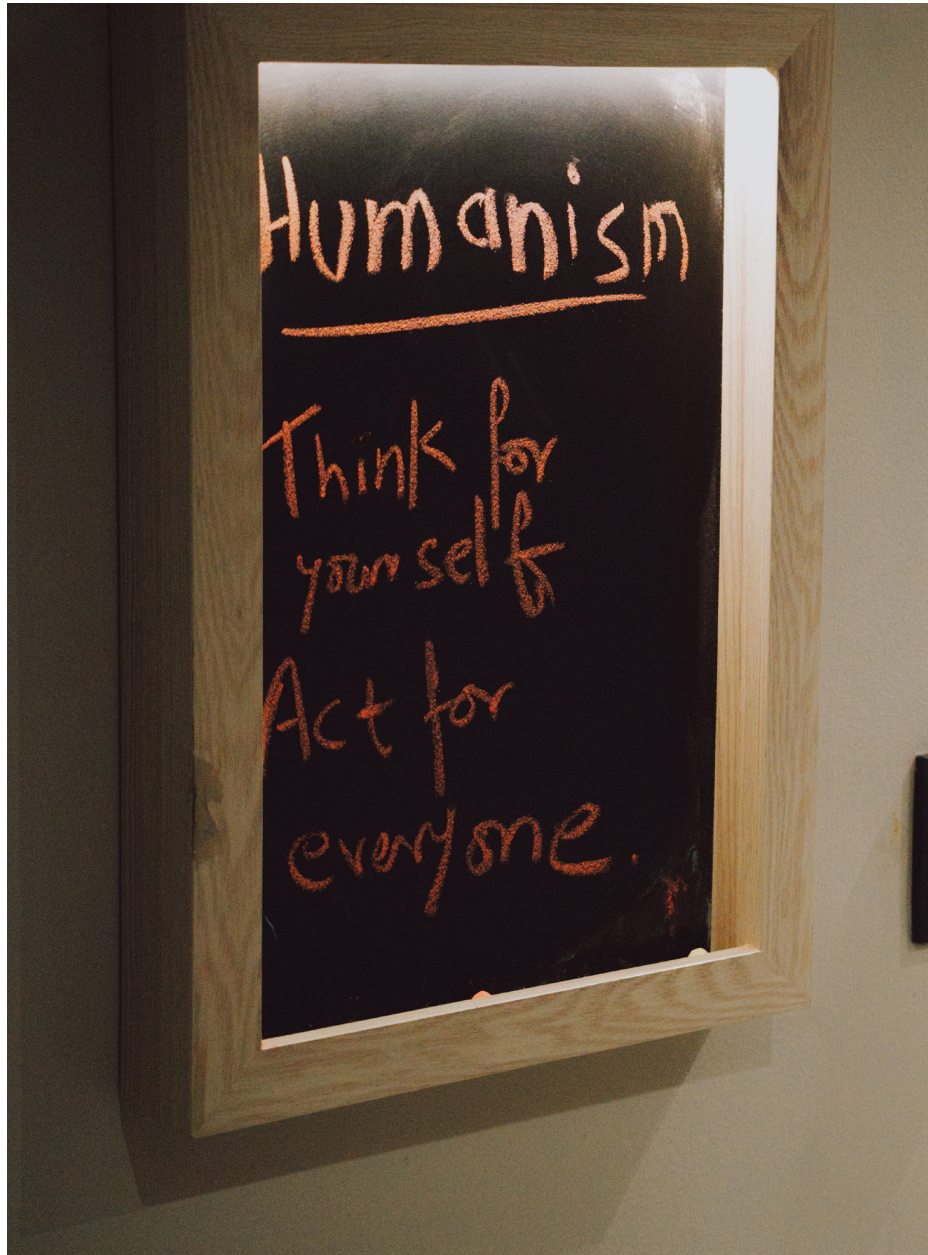 Humanism
Think for
yourself
Act for
everyone.